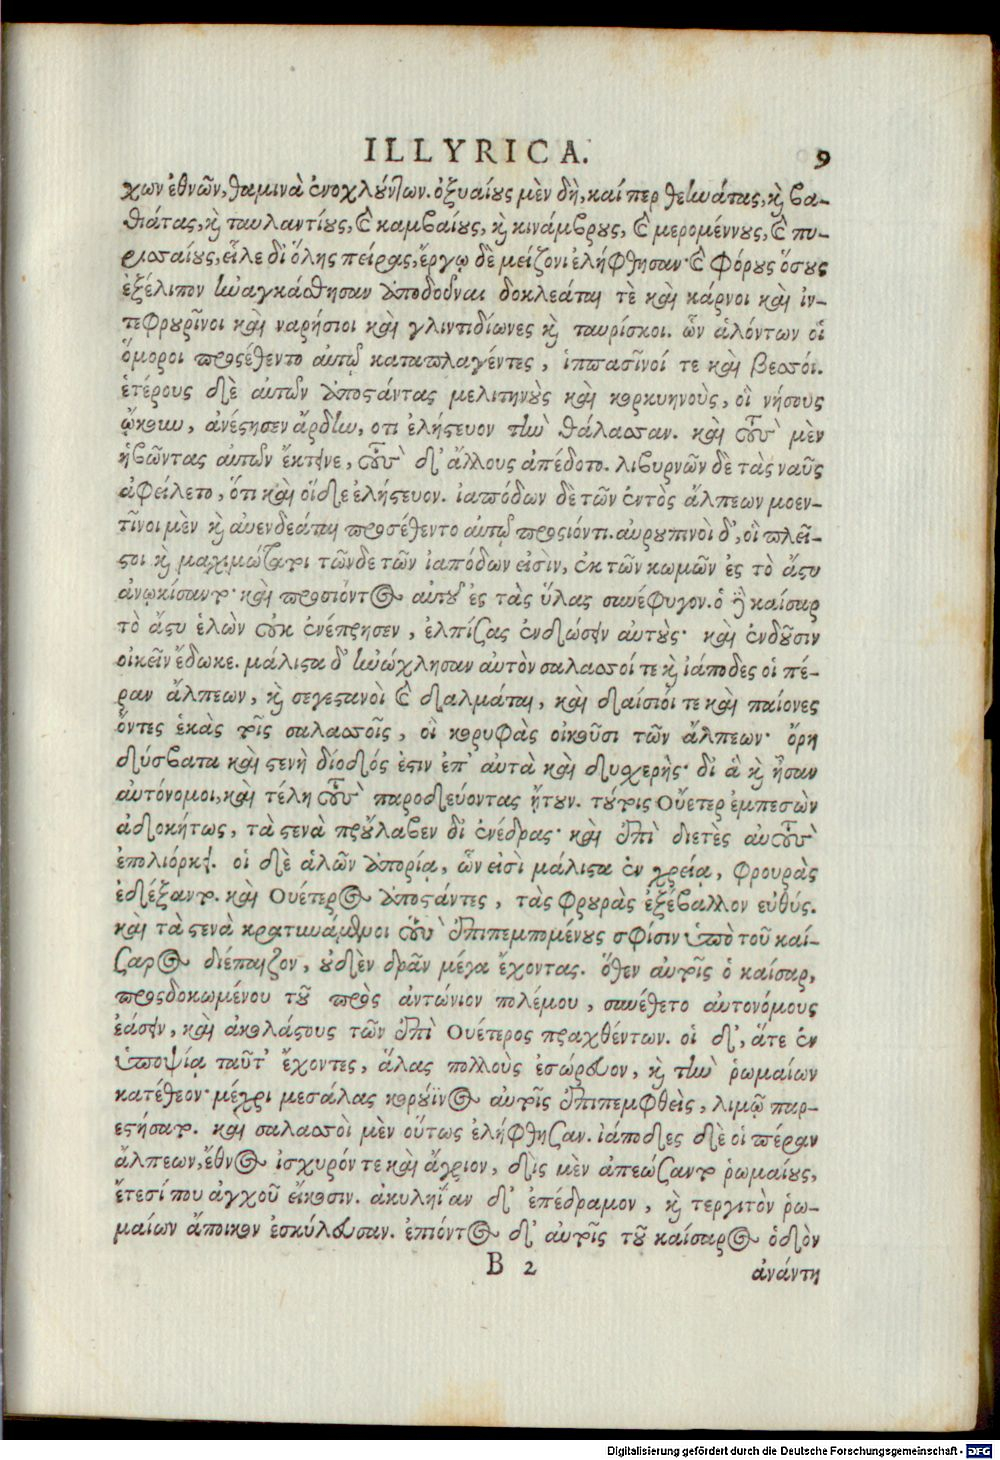 ILLYRICA. 9
χων ἐθνῶν, θαμινὰ ἐνοχλούντων. ὀξυαίους μὲν δὴ, καί περ θεηνάτας, καὶ βα-
θιάτας, καὶ ταυλαντίους, καὶ καμβαίους, καὶ κινάμβρους, καὶ μερομέννους, καὶ πυ-
ρισσαίους, εἷλε δι' ὅλης πείρας, ἔργῳ δὲ μείζονι ἐλήφθησαν· καὶ φόρους ὅσους
ἐξέλιπον ἠναγκάσθησαν ἀποδοῦναι δοκλεάται τὲ καὶ κάρνοι καὶ ἰν-
τεφρουρῖνοι καὶ ναρήσιοι καὶ γλιντιδίωνες καὶ ταυρίσκοι. ὧν ἁλόντων οἱ
ὅμοροι προσέθεντο αὐτῷ καταπλαγέντες, ἱππασῖνοί τε καὶ βεσσοί.
ἑτέρους δὲ αὐτῶν ἀποστάντας μελιτηνοὺς καὶ κορκυηνοὺς, οἳ νήσους
ᾤκουν, ἀνέστησεν ἄρδην, οτι ἐλῄστευον τὴν θάλασσαν. καὶ τοὺς μὲν
ἡβῶντας αὐτῶν ἔκτεινε, τοὺς δ' ἄλλους ἀπέδοτο. λιβυρνῶν δὲ τὰς ναῦς
ἀφείλετο, ὅτι καὶ οἵδε ἐλῄστευον. ἰαπόδων δὲ τῶν ἐντὸς ἄλπεων μοεν-
τῖνοι μὲν καὶ αὐενδεάται προσέθεντο αὐτῷ προσιόντι. αὐρουπινοὶ δ', οἳ πλεῖ-
στοι καὶ μαχιμώτατοι τῶνδε τῶν ἰαπόδων εἰσὶν, ἐκ τῶν κωμῶν ἐς τὸ ἄστυ
ἀνῳκίσαντο· καὶ προσιόντος αὐτοῦ ἐς τὰς ὕλας συνέφυγον. ὁ δὲ καίσαρ
τὸ ἄστυ ἑλὼν οὐκ ἐνέπρησεν, ἐλπίσας ἐνδώσειν αὐτούς· καὶ ἐνδοῦσιν
οἰκεῖν ἔδωκε. μάλιστα δ' ἠνώχλησαν αὐτὸν σαλασσοί τε καὶ ἰάποδες οἱ πέ-
ραν ἄλπεων, καὶ σεγεστανοὶ καὶ δαλμάται, καὶ δαίσιοί τε καὶ παίονες
ὄντες ἑκὰς τοῖς σαλασσοῖς, οἳ κορυφὰς οἰκοῦσι τῶν ἄλπεων· ὄρη
δύσβατα καὶ στενὴ δίοδός ἐστιν ἐπ' αὐτὰ καὶ δυσχερής· δι' ἃ καὶ ἦσαν
αὐτόνομοι, καὶ τέλη τοὺς παροδεύοντας ᾔτουν. τούτοις Οὐέτερ ἐμπεσὼν
ἀδοκήτως, τὰ στενὰ προὔλαβεν δι' ἐνέδρας· καὶ ἐπὶ διετὲς αὐτοὺς
ἐπολιόρκει. οἱ δὲ ἁλῶν ἀπορίᾳ, ὧν εἰσὶ μάλιστα ἐν χρείᾳ, φρουρὰς
ἐδέξαντο. καὶ Οὐέτερος ἀποστάντες, τὰς φρουρὰς ἐξέβαλλον εὐθύς.
καὶ τὰ στενὰ κρατυνάμενοι τοὺς ἐπιπεμπομένους σφίσιν ὑπὸ τοῦ καί-
σαρος διέπαιζον, οὐδὲν δρᾶν μέγα ἔχοντας. ὅθεν αὐτοῖς ὁ καίσαρ,
προσδοκωμένου τοῦ πρὸς ἀντώνιον πολέμου, συνέθετο αὐτονόμους
ἐάσειν, καὶ ἀκολάστους τῶν ἐπὶ Οὐέτερος πραχθέντων. οἱ δ', ἅτε ἐν
ὑποψίᾳ ταῦτ' ἔχοντες, ἅλας πολλοὺς ἐσώρευον, καὶ τὴν ῥωμαίων
κατέθεον· μέχρι μεσάλας κορούϊνος αὐτοῖς ἐπιπεμφθεὶς, λιμῷ παρ-
εστήσατο. καὶ σαλασσοὶ μὲν οὕτως ἐλήφθησαν. ἰάποδες δὲ οἱ πέραν
ἄλπεων, ἔθνος ἰσχυρόν τε καὶ ἄγριον, δὶς μὲν ἀπεώσαντο ῥωμαίους,
ἔτεσί που ἀγχοῦ εἴκοσιν. ἀκυληΐαν δ' ἐπέδραμον, καὶ τεργιτὸν ῥω-
μαίων ἄποικον ἐσκύλευσαν. ἐπιόντος δ' αὐτοῖς τοῦ καίσαρος ὁδὸν
B 2 ἀνάντη
Digitalisierung gefördert durch die Deutsche Forschungsgemeinschaft - DFG